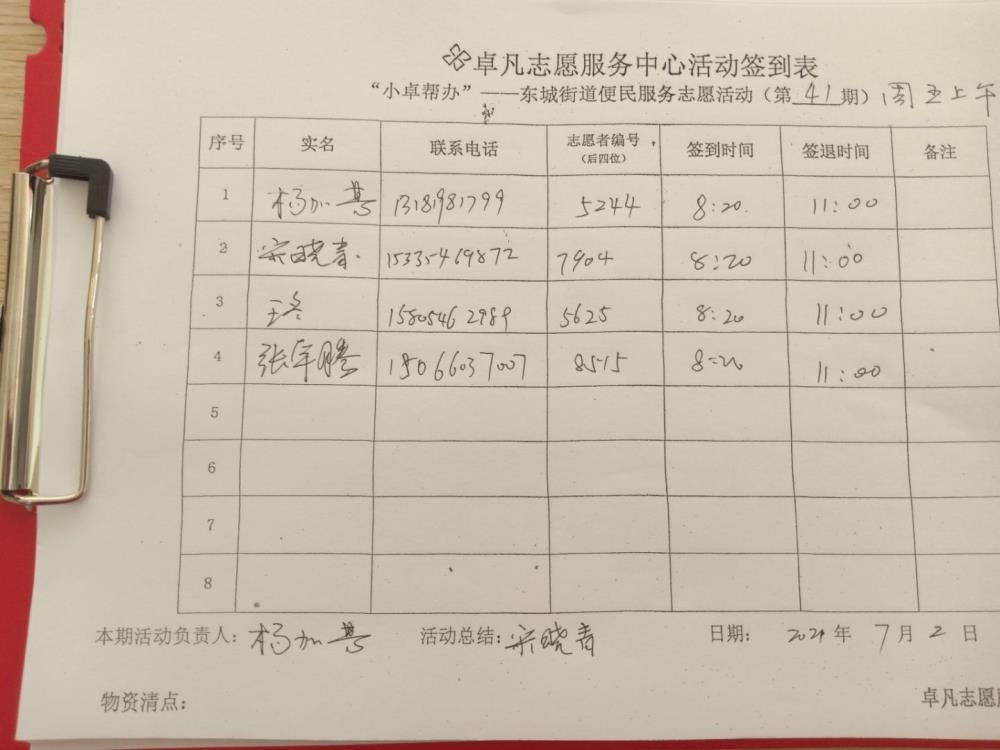 卓凡志愿服务中心活动签到表
“小卓帮办”——东城街道便民服务志愿活动（第41期）周五上午
序号 实名 联系电话 志愿者编号（后四位） 签到时间 签退时间 备注
1 杨加 13181981799 5244 8:20 11:00
2 宋晓青 15335469872 7904 8:20 11:00
3 王 15805462989 5625 8:20 11:00
4 张军腾 15066037007 8515 8:20 11:00
5
6
7
8
本期活动负责人：杨加 活动总结：宋晓青 日期：2021年7月2日
物资清点： 卓凡志愿